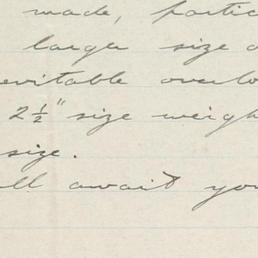 made, partic
large size o
evitable overlo
2½" size weigh
size.
ll await you